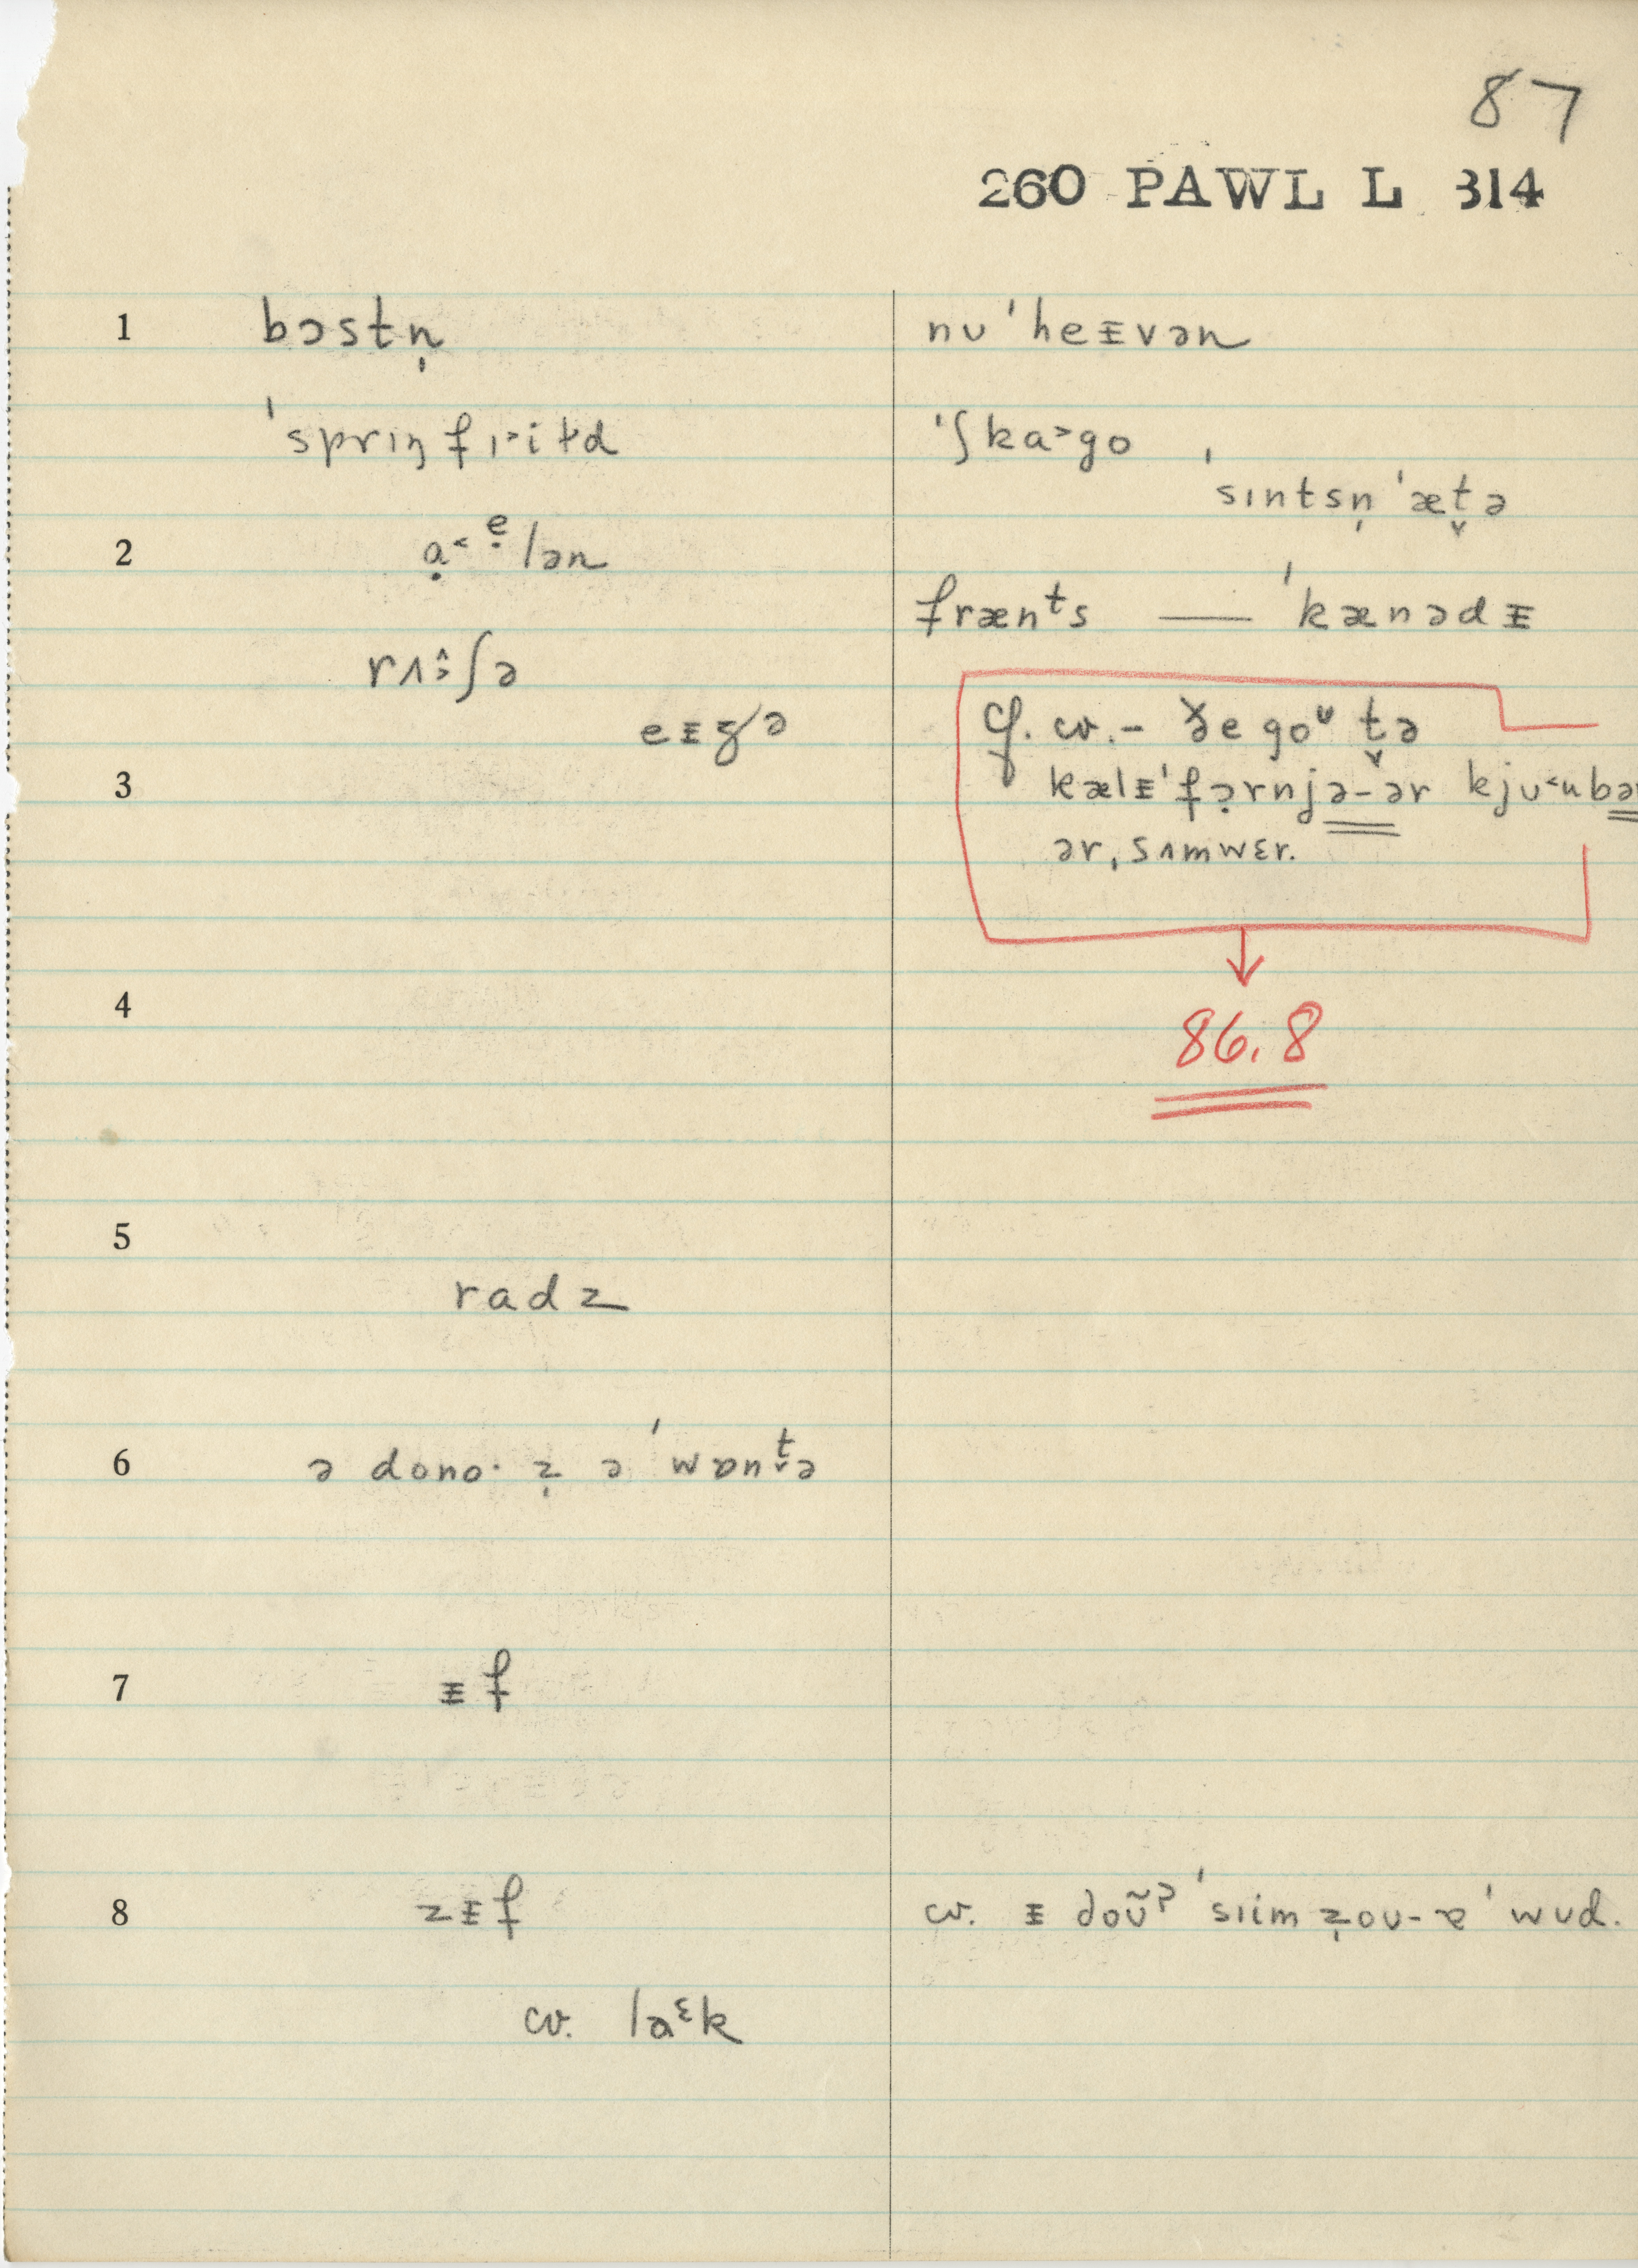 87
260 PAWL L 314
1 bɔstn̩ nu'heᵻvən
'sprɪŋfɪ˃iɫd 'ʃka˃go,
sɪntsn̩'æt̬ə
2 ạ˂ẹlən
frænᵗs — 'kænədᵻ
rʌ˔ʃə
eᵻʒə
Cf. cv. - ðe goᶸ t̬ə
3 kælᵻ'fə̣rnjə-ər kju˂ubə
ər, sʌmwɛr.
4
86.8
5
radz
6 ə dono· z̩ ə 'wɒnt̬ə
7 ᵻf
8 zᵻf cv. ᵻ doʊ̃ʔ 'sɪim z̩oʊ-ɐ 'wʊd.
cv. laᵋk